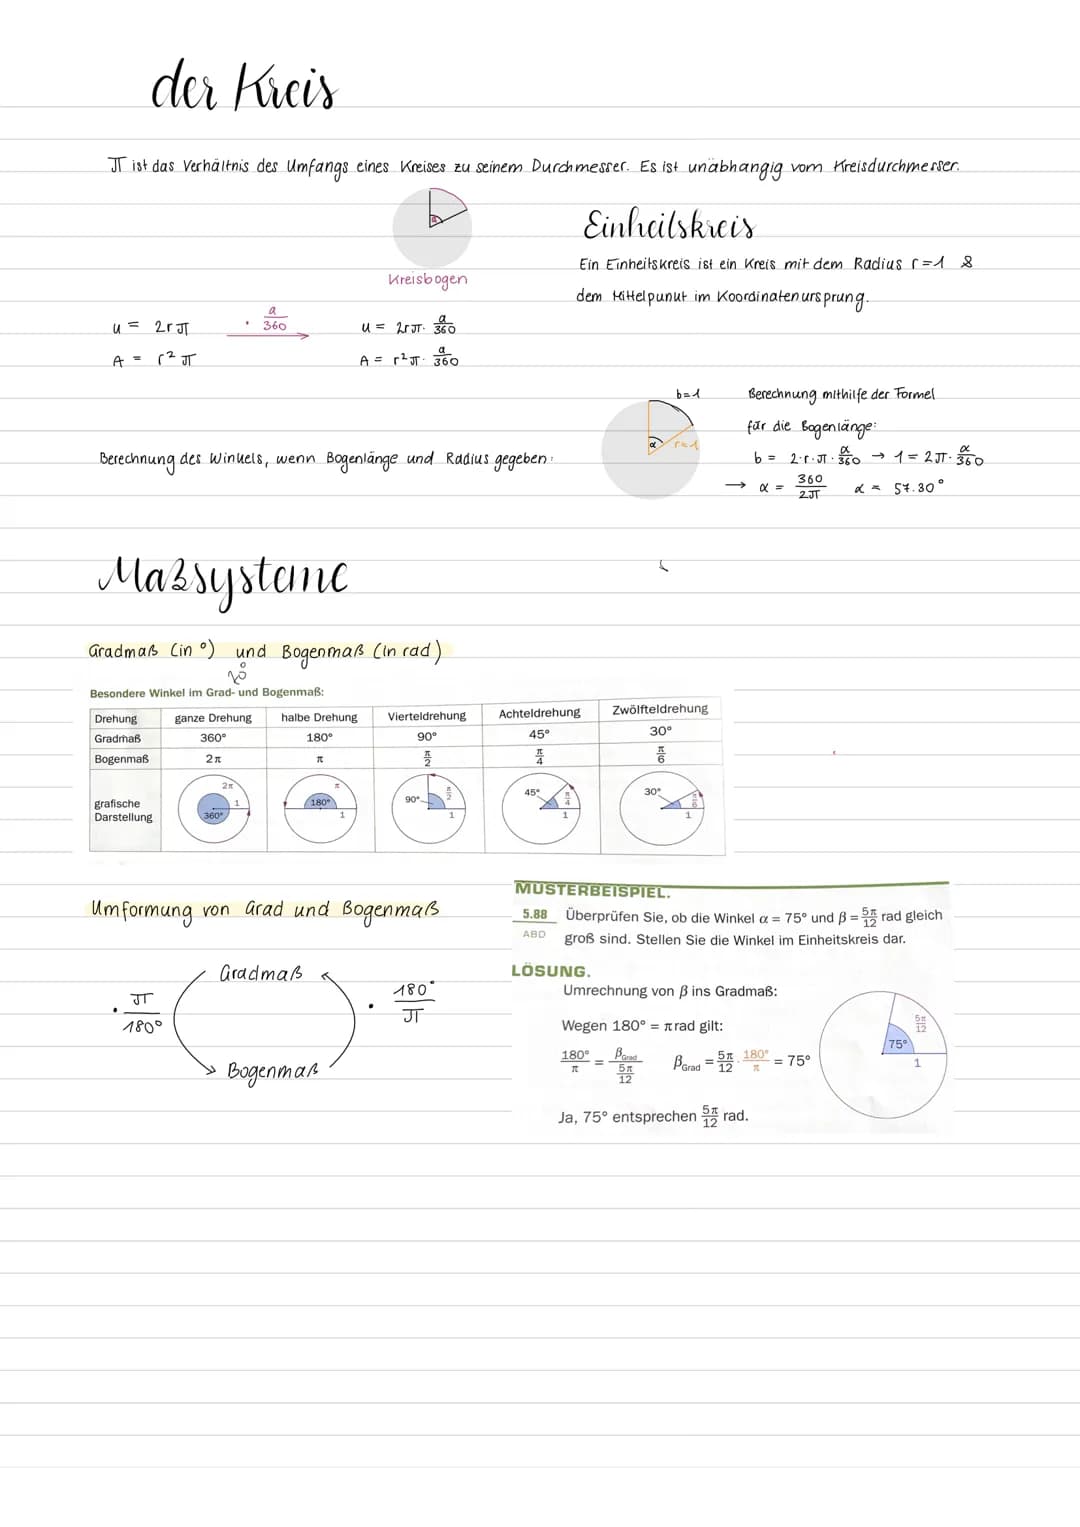 der Kreis
π ist das Verhältnis des Umfangs eines Kreises zu seinem Durchmesser. Es ist unabhangig vom Kreisdurchmesser.
a
Kreisbogen
Einheitskreis
Ein Einheitskreis ist ein Kreis mit dem Radius r=1 &
dem Mittelpunkt im Koordinatenursprung.
u = 2rπ · a/360 u = 2rπ · a/360
A = r²π A = r²π · a/360
b=1
α r=1
Berechnung mithilfe der Formel
für die Bogenlänge:
b = 2·r·π · α/360 → 1 = 2π · α/360
→ α = 360/2π α ≈ 57.30°
Berechnung des Winkels, wenn Bogenlänge und Radius gegeben:
Maßsysteme
Gradmaß (in °) und Bogenmaß (in rad)
Besondere Winkel im Grad- und Bogenmaß:
Drehung ganze Drehung halbe Drehung Vierteldrehung Achteldrehung Zwölfteldrehung
Gradmaß 360° 180° 90° 45° 30°
Bogenmaß 2π π π/2 π/4 π/6
grafische Darstellung
2π 1 360°
π 180° 1
90° π/2 1
45° π/4 1
30° π/6 1
Umformung von Grad und Bogenmaß
Gradmaß
· π/180° · 180°/π
Bogenmaß
MUSTERBEISPIEL.
5.88 Überprüfen Sie, ob die Winkel α = 75° und β = 5π/12 rad gleich
ABD groß sind. Stellen Sie die Winkel im Einheitskreis dar.
LÖSUNG.
Umrechnung von β ins Gradmaß:
Wegen 180° = π rad gilt:
180°/π = β_Grad/(5π/12) β_Grad = 5π/12 · 180°/π = 75°
Ja, 75° entsprechen 5π/12 rad.
5π/12
75°
1